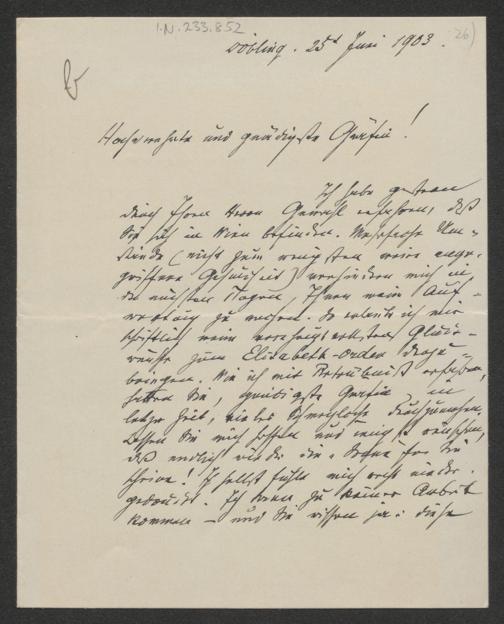 I.N. 233.852
26)
Döbling. 25t Juni 1903.
Hochverehrte und gnädigste Gräfin!
Ich habe gestern
durch Ihren Herrn Gemahl erfahren, daß
Sie sich in Wien befinden. Mehrfache Um-
stände (nicht zum wenigsten meine ange-
griffene Gesundheit) verhindern mich in
den nächsten Tagen, Ihnen meine Auf-
wartung zu machen. So erlaube ich mir
schriftlich meine
wünsche zum Elisabeth-Orden
bringen. Wie ich mit Betrübniß erfahren,
hatten Sie, gnädigste Gräfin in
letzter Zeit, vieles Schmerzliche durchzumachen.
Lassen Sie mich hoffen und innigst wünschen,
daß endlich wieder die Sonne für Sie
scheine! Ich selbst fühle mich recht nieder-
gedrückt. Ich kann zu keiner Arbeit
kommen – und Sie wissen ja: diese